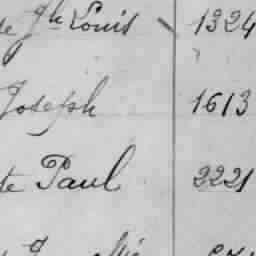 de Jh Louis 1324
Joseph 1613
te Paul 2221